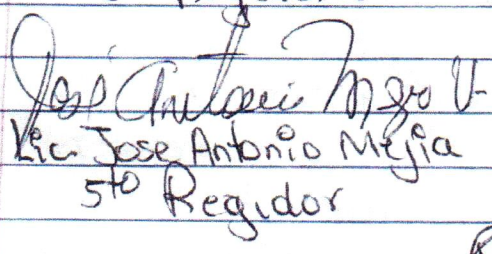 José Antonio Mejia V.
Lic Jose Antonio Mejia
5to Regidor